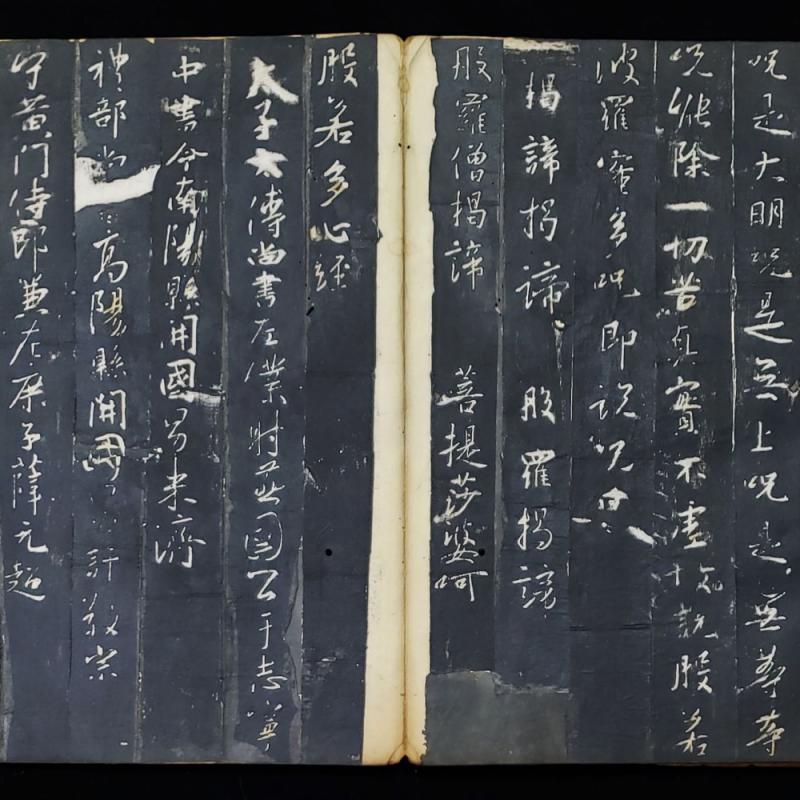 咒是大明咒是無上咒是無等等
咒能除一切苦真實不虛故說般若
波羅蜜多咒即說咒曰
揭諦揭諦 般羅揭諦
般羅僧揭諦 菩提莎婆呵
般若多心經
太子太傅尚書左僕射燕國公于志寧
中書令南陽縣開國男來濟
禮部尚 高陽縣開國 許敬宗
守黃門侍郎兼左庶子薛元超